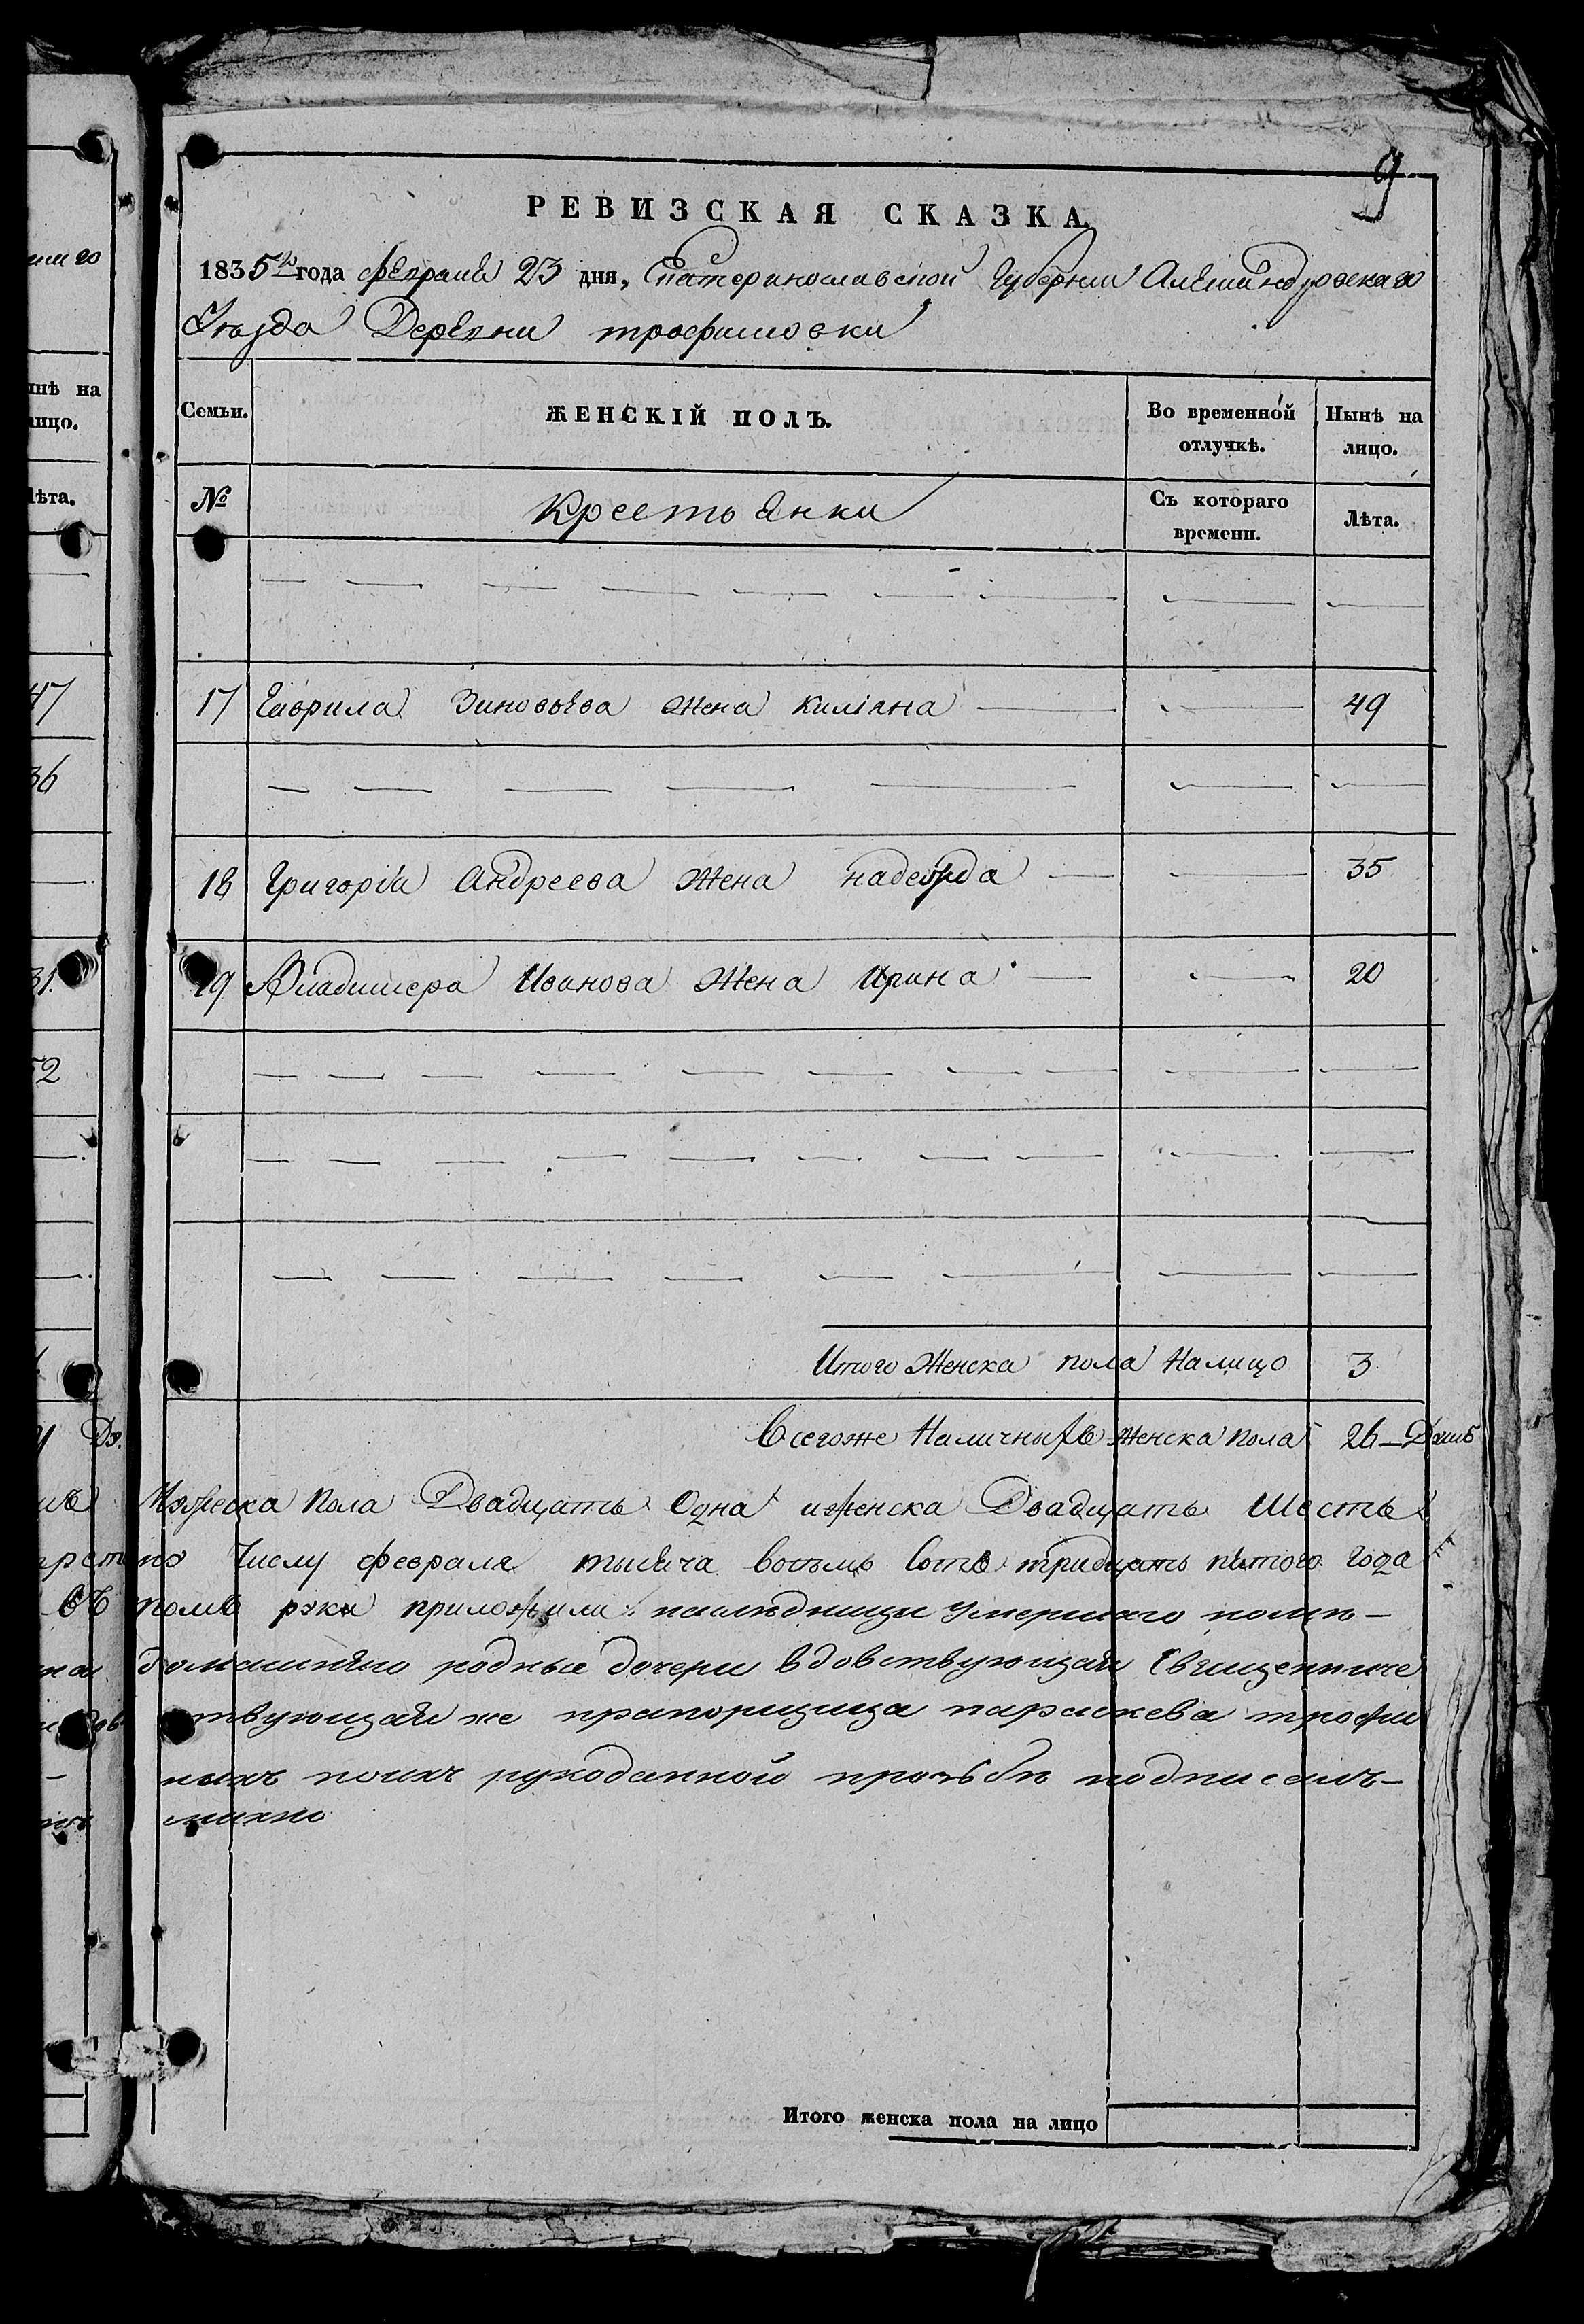 9
РЕВИЗСКАЯ СКАЗКА.
1835го года февраля 23 дня, Екатеринославской Губернии Александровскаго
Уезда Деревни трофимовки
Семьи. ЖЕНСКІЙ ПОЛЪ. Во временной отлучкѣ. Нынѣ на лицо.
№ Крестьянки Съ котораго времени. Лѣта.
17 Гаврила Зиновьева жена Килiяна 49
18 Григорія Андреева жена надежда 35
19 Владимера Иванова жена Ирина 20
Итого Женска пола Налицо 3
Всегоже Наличныхъ женска пола 26 Душъ
Мужеска Пола Двадцать Одна иженска Двадцать Шесть
по Числу февраля тысяча восемь Сотъ тридцать пятого года
томъ руки приложили наследницы умершаго поме-
родные дочери вдовствующая Священниче
твующая же прапорщица параскева трофим
ихъ рукоданной прозьбе подписалъ-
махно
Итого женска пола на лицо
нѣ на
лицо.
лѣта.
47
36
31.
52